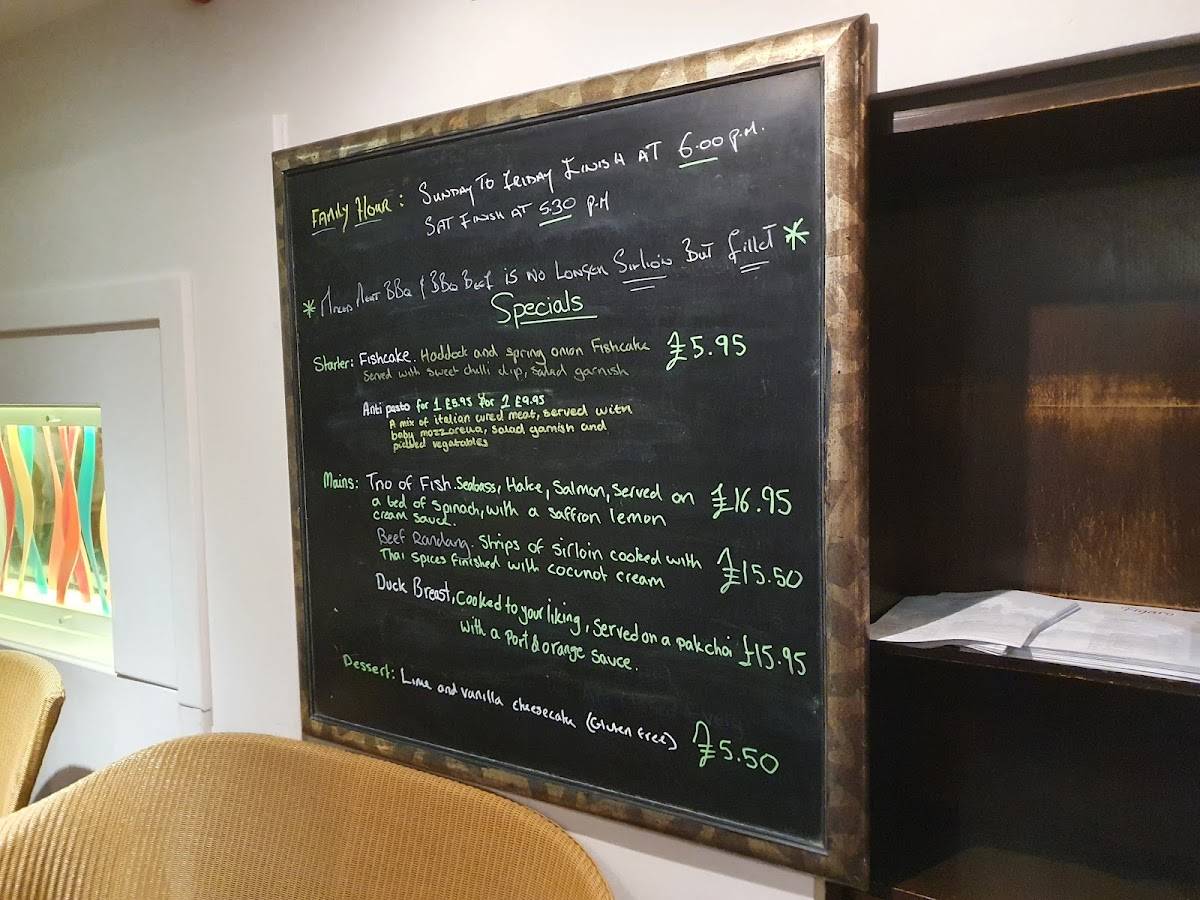 FAMILY HOUR: SUNDAY TO FRIDAY FINISH AT 6.00 P.M.
SAT FINISH AT 5.30 P.M
* MIXED MEAT BBQ & BBQ BEEF IS NO LONGER SIRLION BUT FILLET *
Specials
Starter: Fishcake. Haddock and spring onion Fishcake £5.95
Served with sweet chilli dip, salad garnish
Anti pasto for 1 £5.95 for 2 £9.95
A mix of italian cured meat, served with
baby mozzarella, salad garnish and
pickled vegatables
Mains: Trio of Fish. Seabass, Hake, Salmon, served on £16.95
a bed of spinach, with a saffron lemon
cream sauce.
Beef Randang. Strips of sirloin cooked with £15.50
Thai spices finished with cocunot cream
Duck Breast, cooked to your liking, served on a pakchoi £15.95
with a Port & orange sauce.
Dessert: Lime and vanilla cheesecake (Gluten free) £5.50
Figaro